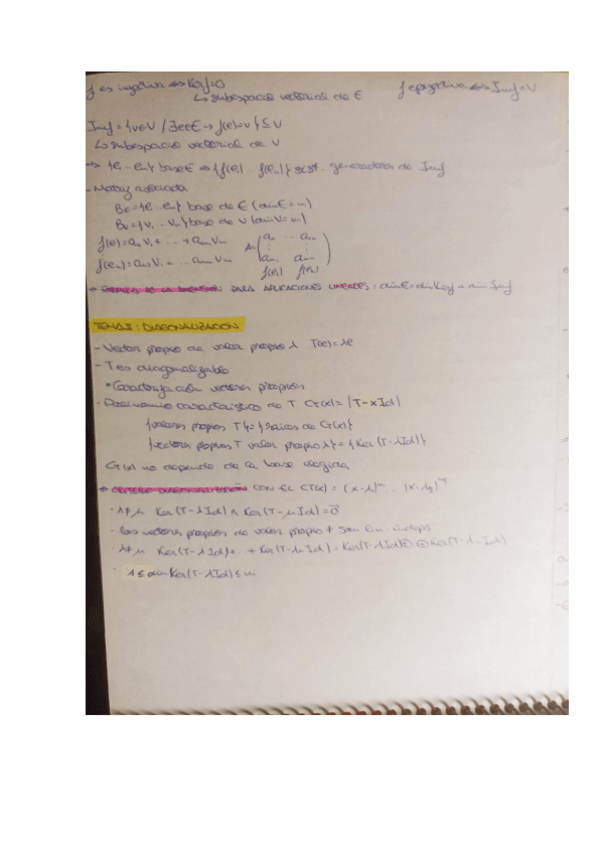 f es inyectiva ⇔ Kerf=0 f epiyectiva ⇔ Imf=V
↳ subespacio vectorial de E
Imf = {v∈V / ∃e∈E → f(e)=v} ⊆ V
↳ subespacio vectorial de V
→ {e₁...eₙ} base E → {f(e₁)...f(eₙ)} sist. generadores de Imf
- Matriz asociada
B_E={e₁...eₙ} base de E (dimE=n)
B_V={v₁...vₘ} base de V (dimV=m)
f(e₁)=a₁₁v₁+...+aₘ₁vₘ
f(eₙ)=a₁ₙv₁+...aₘₙvₘ
f(e₁) f(eₙ)
DE LA DIMENSIÓN PARA APLICACIONES LINEALES: dimE=dimKerf+dimImf
TEMA: DIAGONALIZACIÓN
- Vector propio de valor propio λ T(e)=λe
- T es diagonalizable
- Polinomio característico de T C_T(x)=|T-xId|
{valores propios T}={raíces de C_T(x)}
{vectores propios T valor propio λ}={Ker(T-λId)}
C_T(x) no depende de la base elegida
CRITERIO DIAGONALIZACIÓN CON EL C_T(x)=(x-λ₁)...(x-λ
· λ≠μ Ker(T-λId)∩Ker(T-μId)=0⃗
· Los vectores propios de valor propio ≠ son lin. indeps
· λ≠μ Ker(T-λId)+...+Ker(T-μId)=Ker(T-λId)⊕...⊕Ker(T-μId)
· 1≤dimKer(T-λId)≤